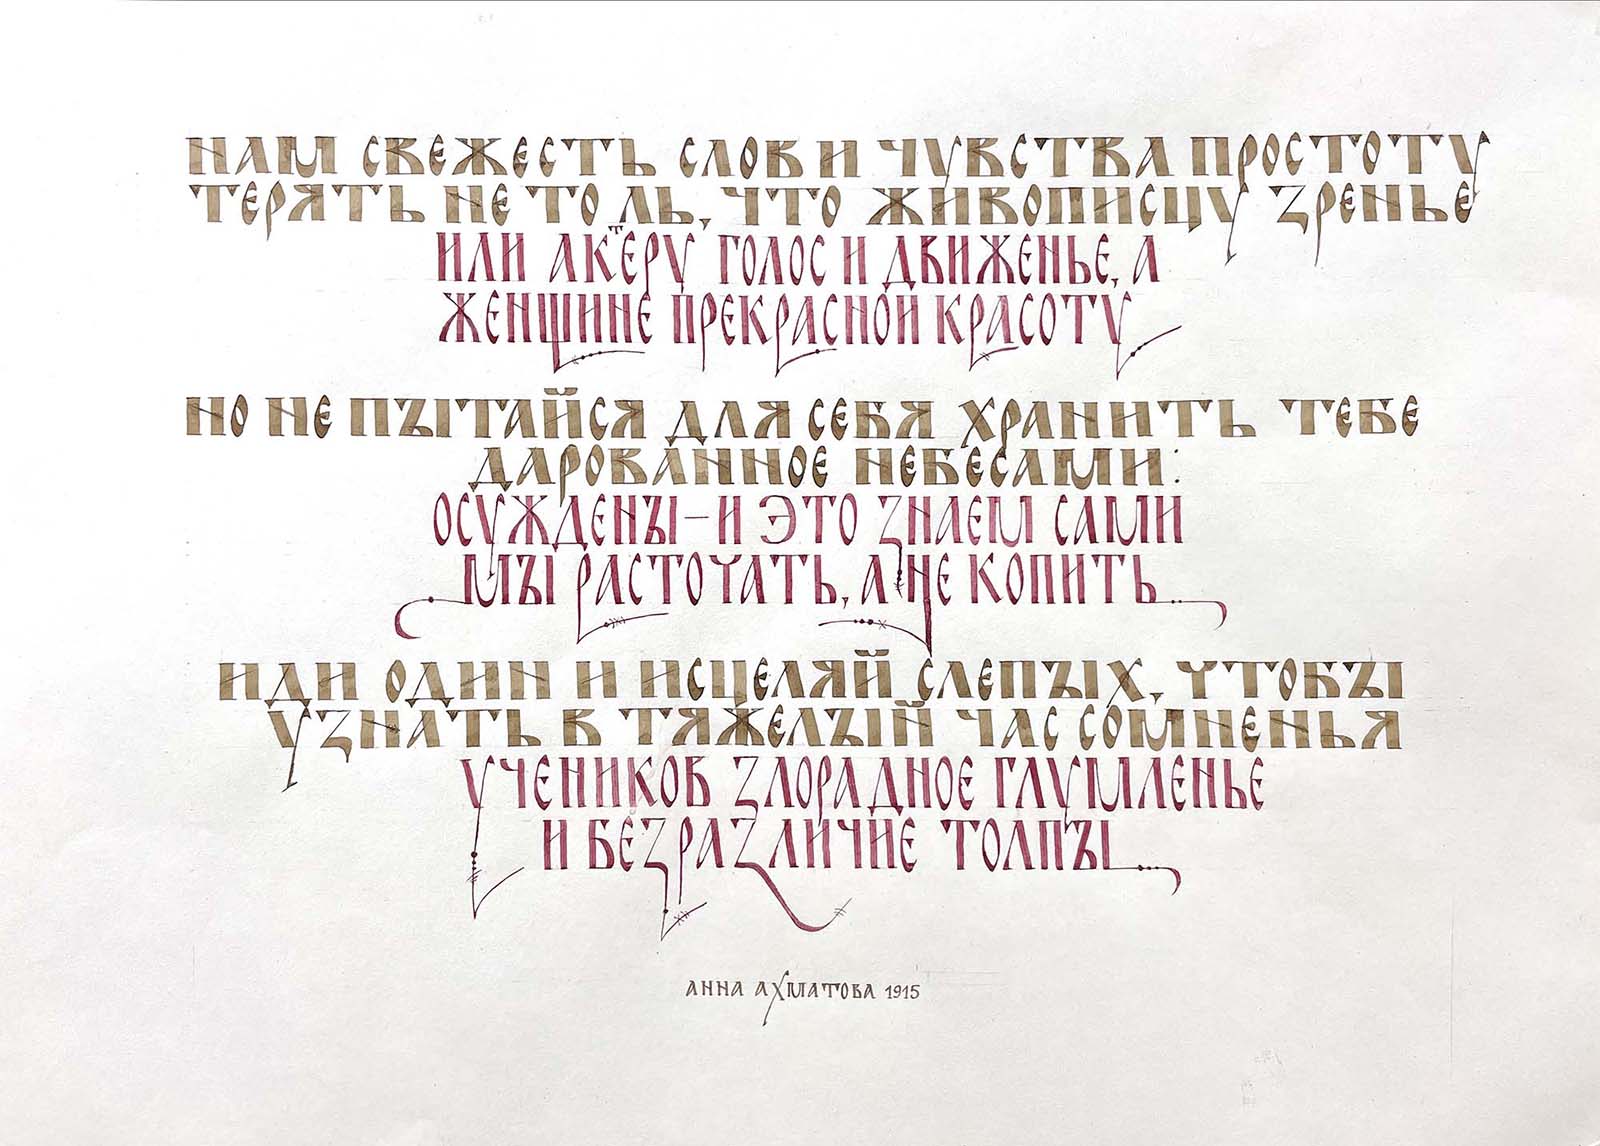 НАМ СВЕЖЕСТЬ СЛОВ И ЧУВСТВА ПРОСТОТУ
ТЕРЯТЬ НЕ ТО ЛЬ, ЧТО ЖИВОПИСЦУ ЗРЕНЬЕ
ИЛИ АКТЕРУ ГОЛОС И ДВИЖЕНЬЕ, А
ЖЕНЩИНЕ ПРЕКРАСНОЙ КРАСОТУ
НО НЕ ПЫТАЙСЯ ДЛЯ СЕБЯ ХРАНИТЬ ТЕБЕ
ДАРОВАННОЕ НЕБЕСАМИ:
ОСУЖДЕНЫ – И ЭТО ЗНАЕМ САМИ
МЫ РАСТОЧАТЬ, А НЕ КОПИТЬ
ИДИ ОДИН И ИСЦЕЛЯЙ СЛЕПЫХ, ЧТОБЫ
УЗНАТЬ В ТЯЖЕЛЫЙ ЧАС СОМНЕНЬЯ
УЧЕНИКОВ ЗЛОРАДНОЕ ГЛУМЛЕНЬЕ
И БЕЗРАЗЛИЧИЕ ТОЛПЫ
АННА АХМАТОВА 1915